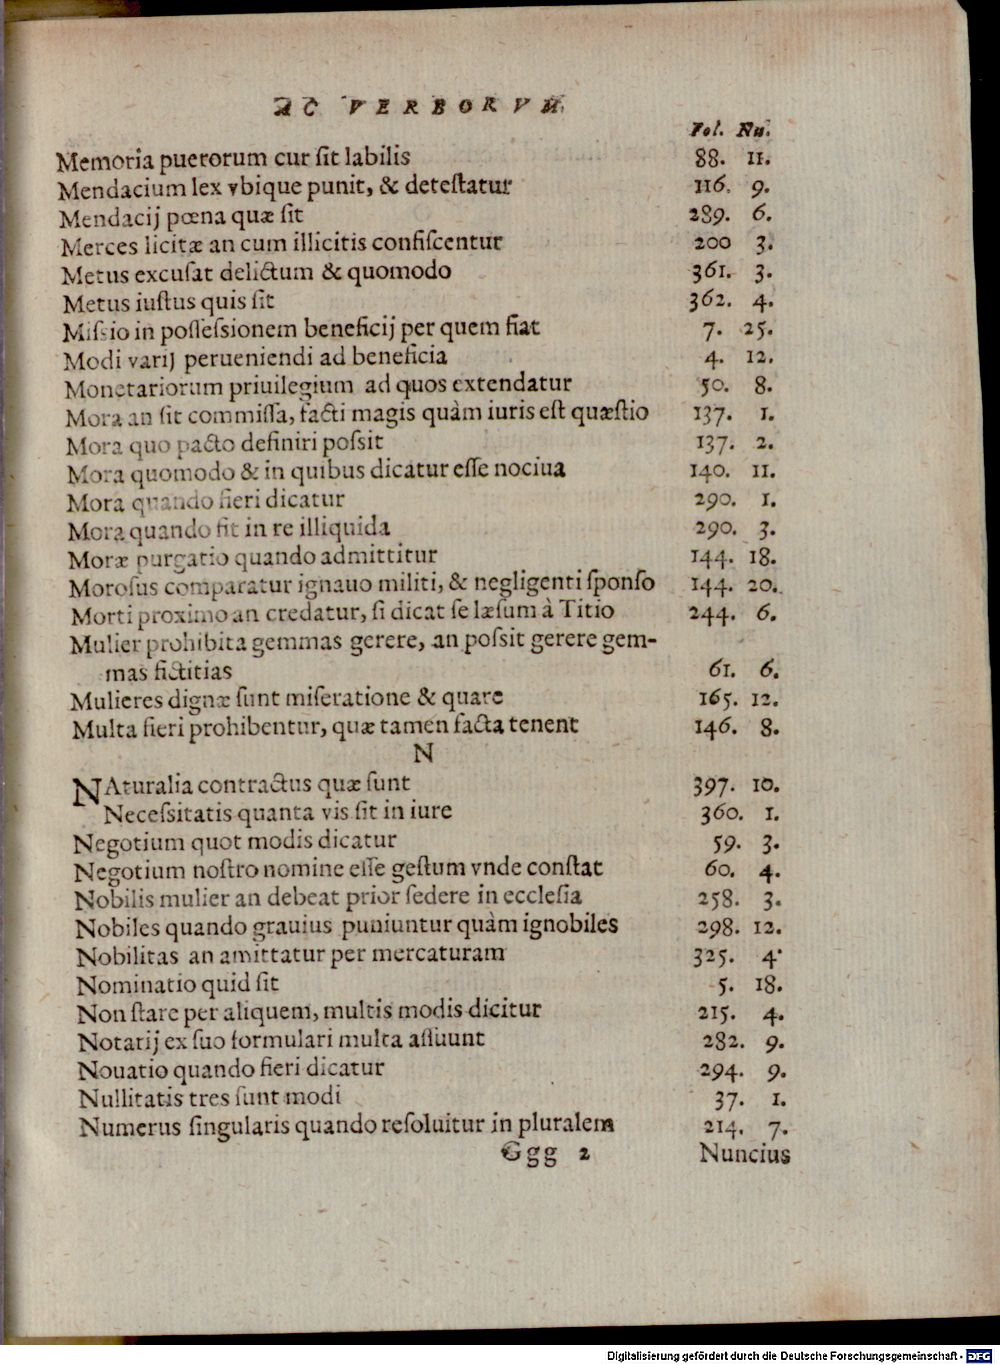 AC VERBORVM.
Fol. Nu.
Memoria puerorum cur sit labilis 88. 11.
Mendacium lex vbique punit, & detestatur 116. 9.
Mendacij pœna quæ sit 289. 6.
Merces licitæ an cum illicitis confiscentur 200 3.
Metus excusat delictum & quomodo 361. 3.
Metus iustus quis sit 362. 4.
Missio in possessionem beneficij per quem fiat 7. 25.
Modi varij perueniendi ad beneficia 4. 12.
Monetariorum priuilegium ad quos extendatur 50. 8.
Mora an sit commissa, facti magis quàm iuris est quæstio 137. 1.
Mora quo pacto definiri possit 137. 2.
Mora quomodo & in quibus dicatur esse nociua 140. 11.
Mora quando fieri dicatur 290. 1.
Mora quando fit in re illiquida 290. 3.
Moræ purgatio quando admittitur 144. 18.
Morosus comparatur ignauo militi, & negligenti sponso 144. 20.
Morti proximo an credatur, si dicat se læsum à Titio 244. 6.
Mulier prohibita gemmas gerere, an possit gerere gem-
mas fictitias 61. 6.
Mulieres dignæ sunt miseratione & quare 165. 12.
Multa fieri prohibentur, quæ tamen facta tenent 146. 8.
N
NAturalia contractus quæ sunt 397. 10.
Necessitatis quanta vis sit in iure 360. 1.
Negotium quot modis dicatur 59. 3.
Negotium nostro nomine esse gestum vnde constat 60. 4.
Nobilis mulier an debeat prior sedere in ecclesia 258. 3.
Nobiles quando grauius puniuntur quàm ignobiles 298. 12.
Nobilitas an amittatur per mercaturam 325. 4.
Nominatio quid sit 5. 18.
Non stare per aliquem, multis modis dicitur 215. 4.
Notarij ex suo formulari multa assuunt 282. 9.
Nouatio quando fieri dicatur 294. 9.
Nullitatis tres sunt modi 37. 1.
Numerus singularis quando resoluitur in pluralem 214. 7.
Ggg 2 Nuncius
Digitalisierung gefördert durch die Deutsche Forschungsgemeinschaft - DFG